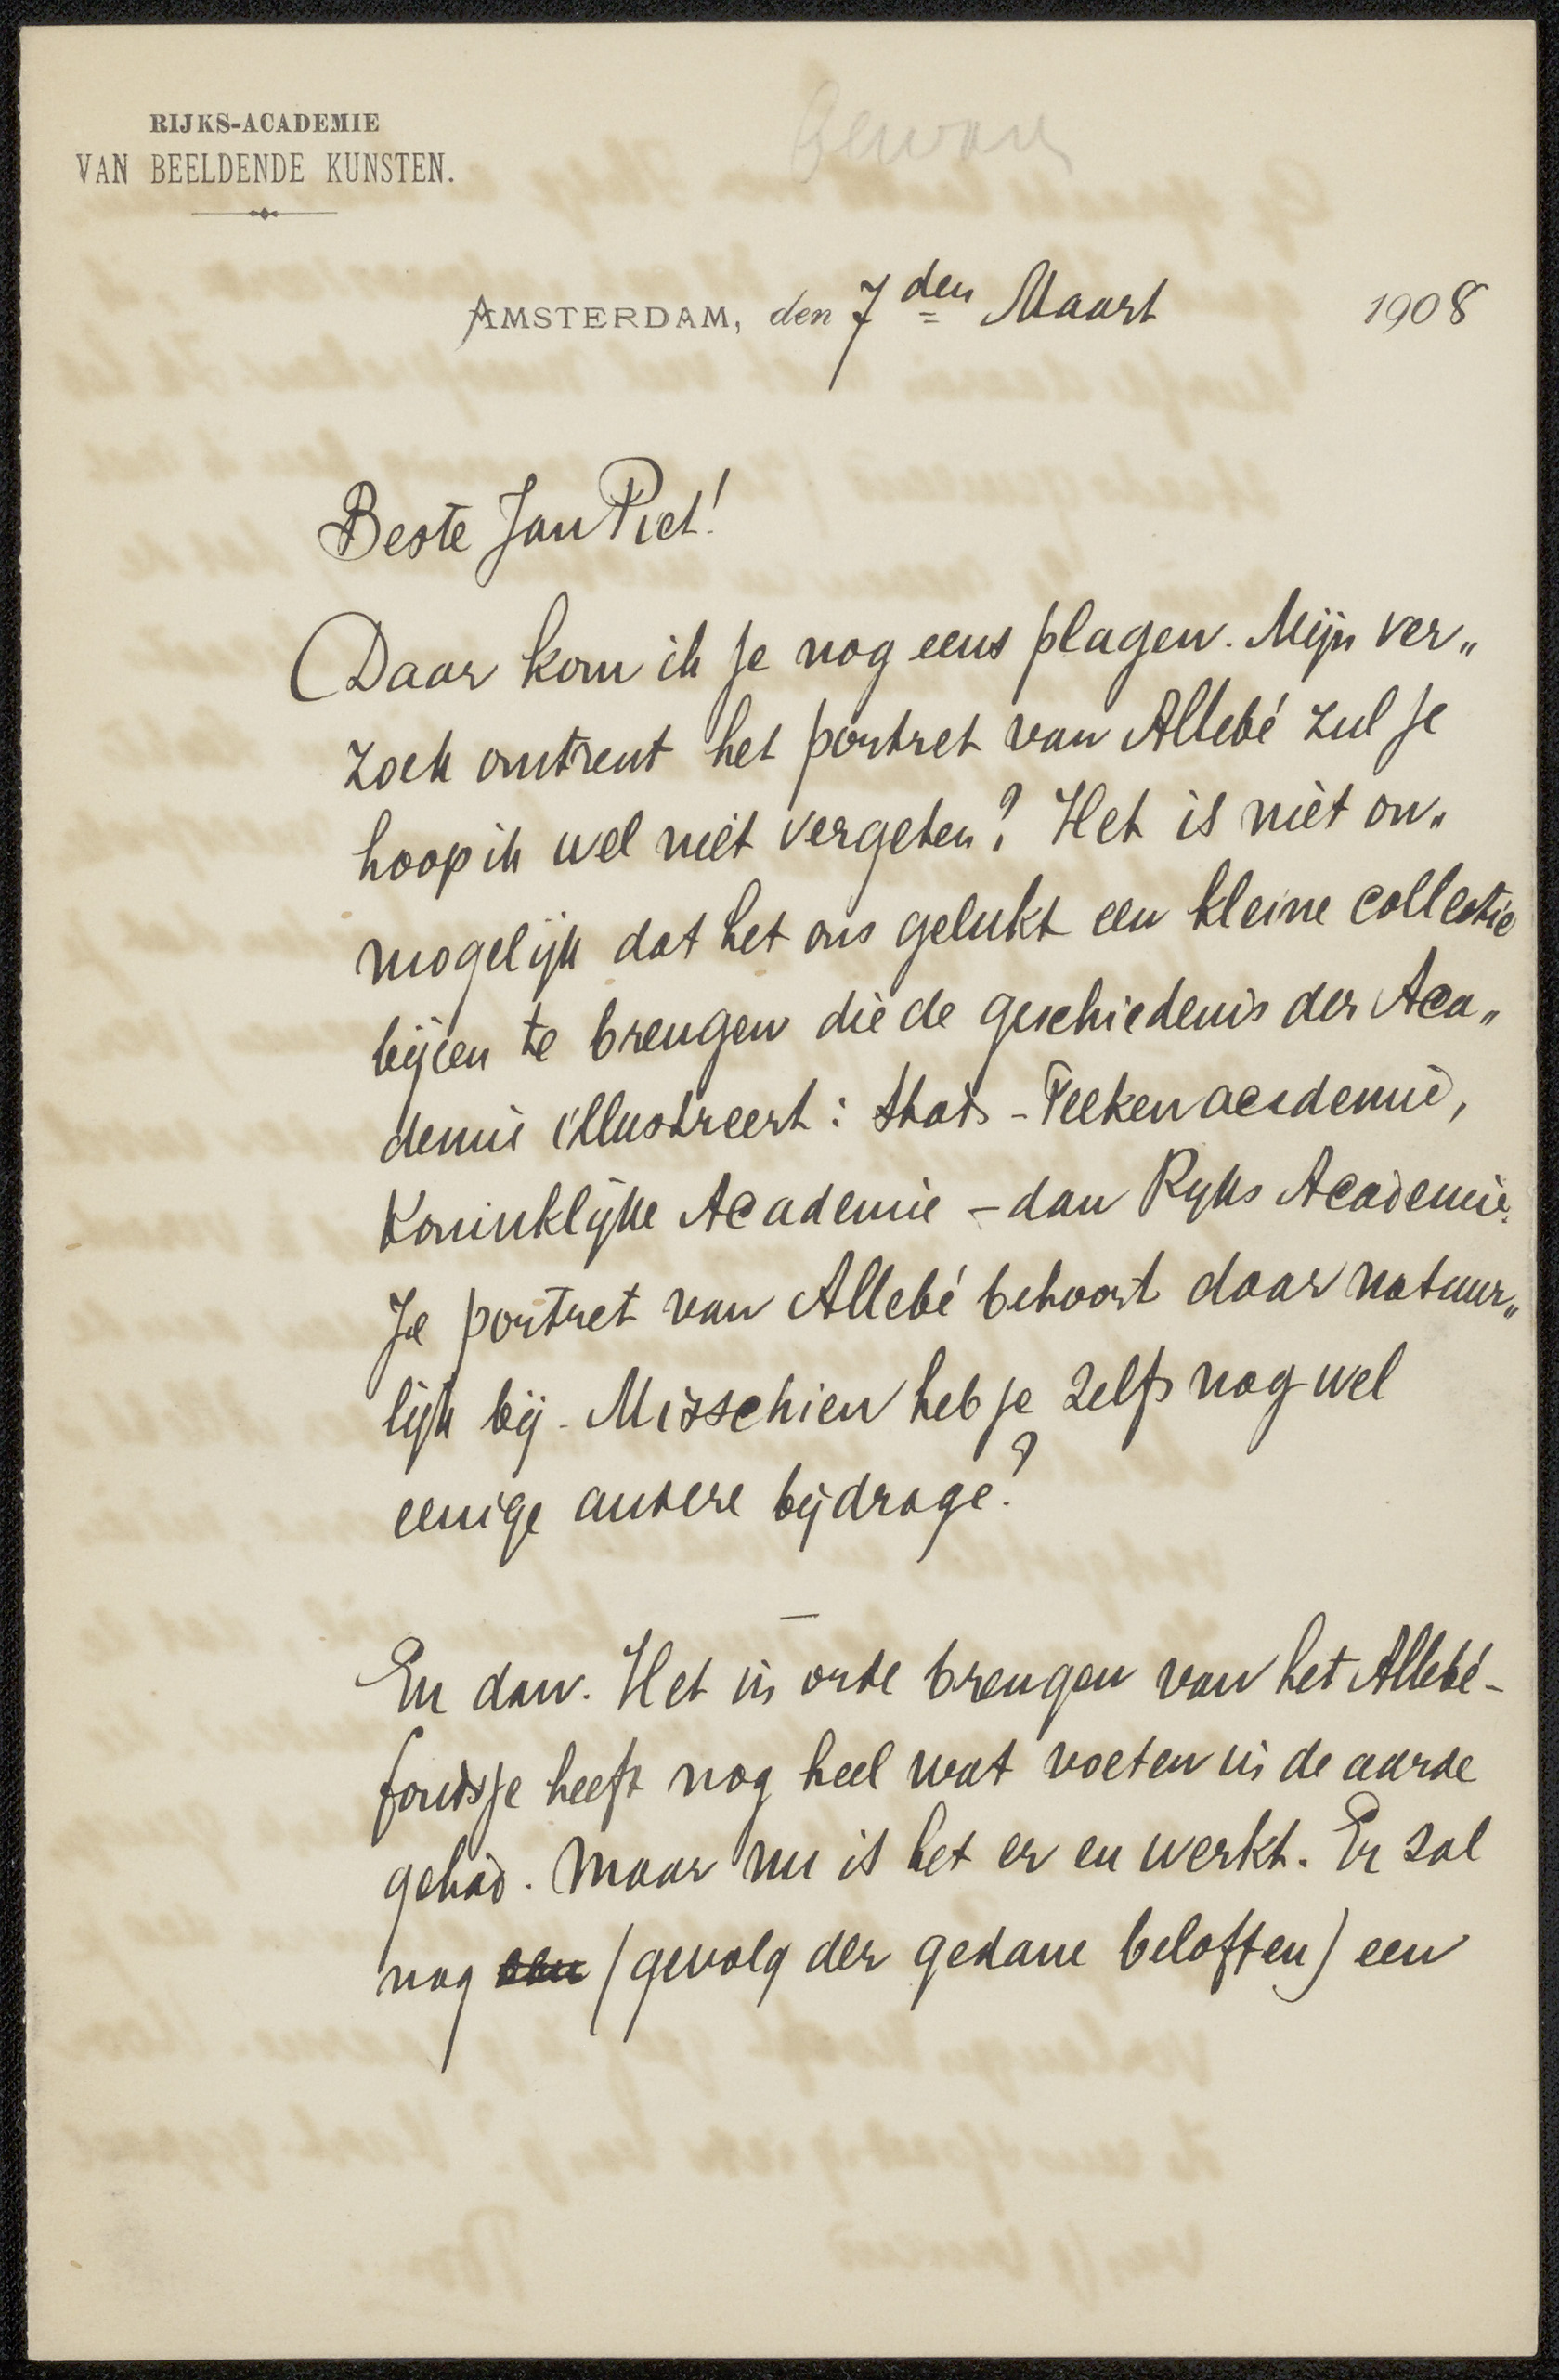 RIJKS-ACADEMIE
VAN BEELDENDE KUNSTEN.
AMSTERDAM, den 7den Maart 1908
Beste Jan Piet!
Daar kom ik je nog eens plagen. Mijn ver„
zoek omtrent het portret van Allebé zul je
hoop ik wel niet vergeten? Het is niet on„
mogelijk dat het ons gelukt een kleine collectie
bijeen te brengen die de geschiedenis der Aca„
demie illustreert: Stads-Teekenacademie,
Koninklijke Academie – dan Ryks Academie.
Je portret van Allebé behoort daar natuur„
lijk bij. Misschien heb je zelfs nog wel
eenige andere bijdrage?
—
En dan. Het in orde brengen van het Allebé-
fondsje heeft nog heel wat voeten in de aarde
gehad. Maar nu is het er en werkt. Er zal
nog (gevolg der gedane beloften) een